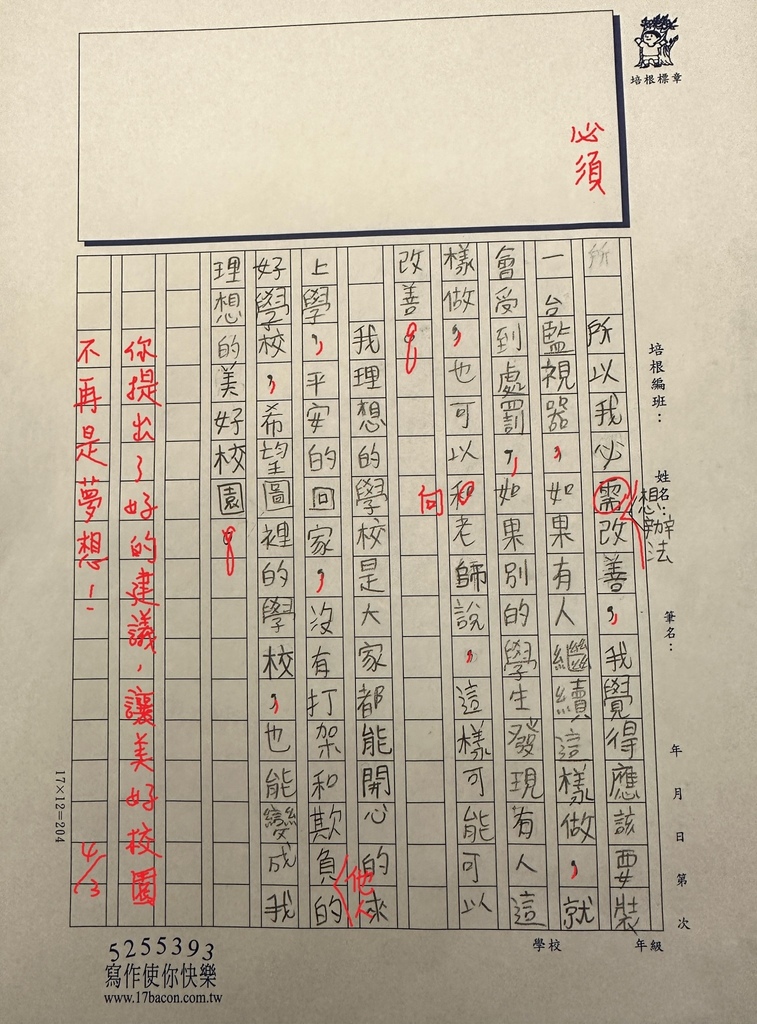 培根標章
必須
培根編班：
姓名：
筆名：
年 月 日 第 次
學校
年級
所
所以我必需改善，我覺得應該要裝
想辦法
一台監視器，如果有人繼續這樣做，就
會受到處罰，如果別的學生發現有人這
樣做，也可以和老師說，這樣可能可以
向
改善。
我理想的學校是大家都能開心的來
上學，平安的回家，沒有打架和欺負的
他人
好學校，希望圖裡的學校，也能變成我
理想的美好校園。
你提出了好的建議，讓美好校園
不再是夢想！
4/3
17×12=204
5255393
寫作使你快樂
www.17bacon.com.tw